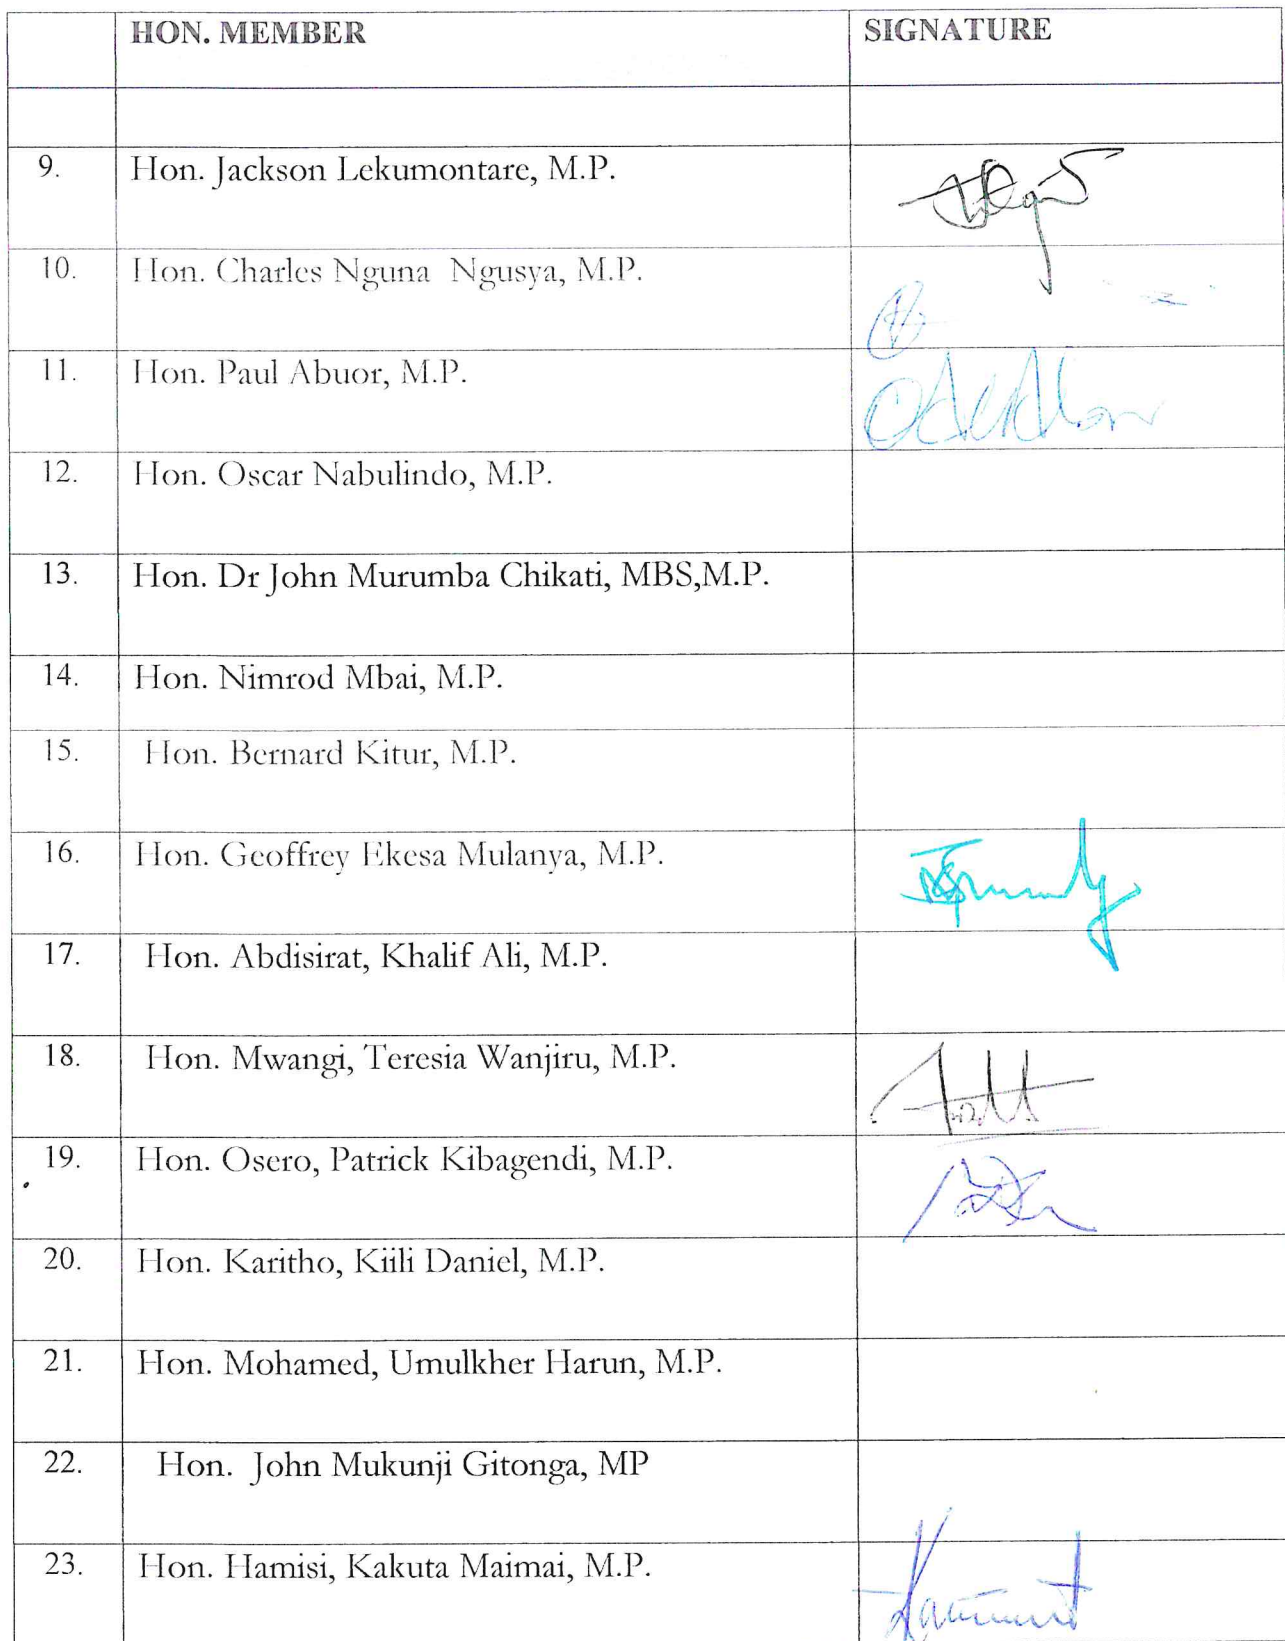 HON. MEMBER SIGNATURE
9. Hon. Jackson Lekumontare, M.P.
10. Hon. Charles Nguna Ngusya, M.P.
11. Hon. Paul Abuor, M.P.
12. Hon. Oscar Nabulindo, M.P.
13. Hon. Dr John Murumba Chikati, MBS,M.P.
14. Hon. Nimrod Mbai, M.P.
15. Hon. Bernard Kitur, M.P.
16. Hon. Geoffrey Ekesa Mulanya, M.P.
17. Hon. Abdisirat, Khalif Ali, M.P.
18. Hon. Mwangi, Teresia Wanjiru, M.P.
19. Hon. Osero, Patrick Kibagendi, M.P.
20. Hon. Karitho, Kiili Daniel, M.P.
21. Hon. Mohamed, Umulkher Harun, M.P.
22. Hon. John Mukunji Gitonga, MP
23. Hon. Hamisi, Kakuta Maimai, M.P.